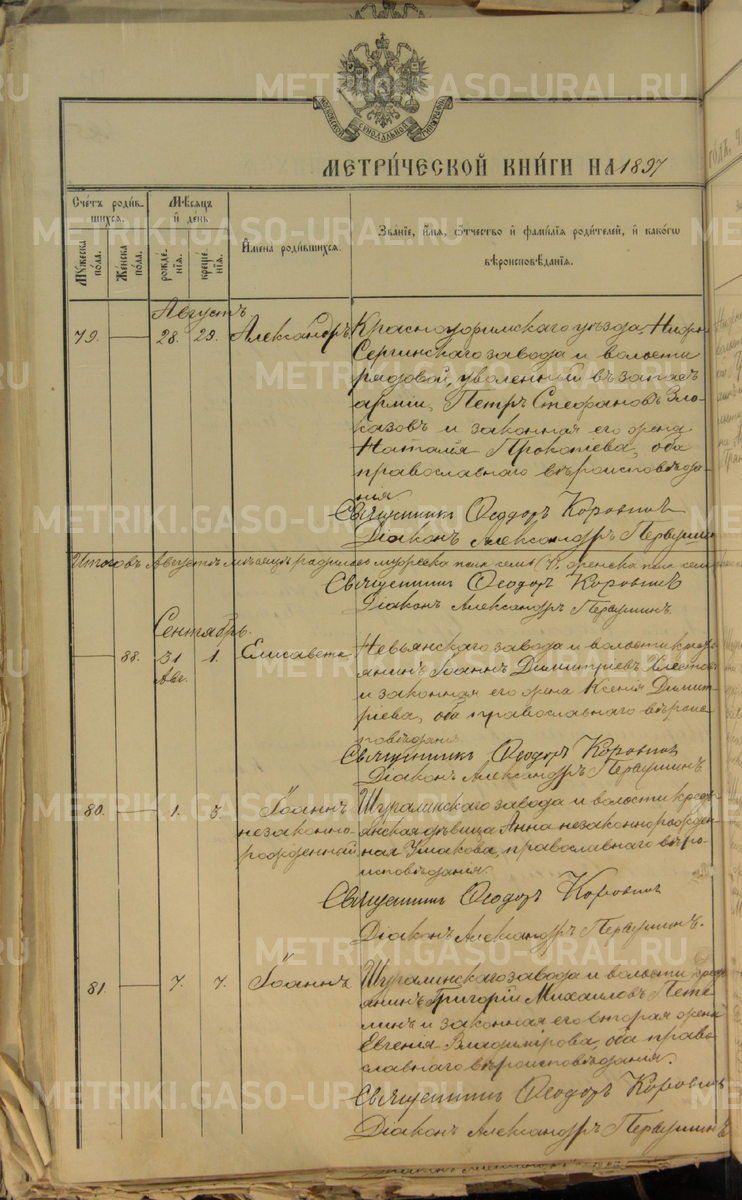 МОСКОВСКОЙ СѴНОДАЛЬНОЙ ТИПОГРАФІИ
МЕТРИ́ЧЕСКОЙ КНИ́ГИ НА 1897
Сче́тъ роди́в-
шихся.
Мѣ́сяцъ
и҆ день
Му́жеска
по́ла.
Же́нска
по́ла.
рожде́-
нїѧ.
креще́-
нїѧ.
И҆мена роди́вшихсѧ.
Зва́нїе, и҆́мѧ, ѻ҆́тчество и҆ фамі́лїѧ роди́телей, и҆ како́гѡ
вѣроисповѣ́данїѧ.
Августъ
79. 28. 29. Александръ
Красноуфимскаго уѣзда, Нижне
Сергинскаго завода и волости
рядовой, уволенный въ запасъ
арміи, Петръ Стефановъ Зло-
казовъ и законная его жена
Наталія Прокопіева, оба
православнаго вѣроисповѣда-
нія
Священникъ Ѳеодоръ Коровинъ
Діаконъ Александръ Первушинъ
Итого въ Августѣ мѣсяцѣ родилось мужеска пола семь (7), женска пола семь
Священникъ Ѳеодоръ Коровинъ
Діаконъ Александръ Первушинъ.
Сентябрь.
88. 31 Авг. 1. Елисавета
Невьянскаго завода и волости кресть-
янинъ Іоаннъ Димитріевъ
и законная его жена Ксенія Димит-
ріева, оба православнаго вѣроис-
повѣданія
Священникъ Ѳеодоръ Коровинъ
Діаконъ Александръ Первушинъ
80. 1. 3. Іоаннъ
незаконно-
рожденный
Шуралинскаго завода и волости кресть-
янская дѣвица Анна незаконнорожден-
ная Ушакова, православнаго вѣро-
исповѣданія.
Священникъ Ѳеодоръ Коровинъ
Діаконъ Александръ Первушинъ.
81. 7. 7. Іоаннъ
Шуралинскаго завода и волости кресть-
янинъ Григорій Михаиловъ Пете-
линъ и законная его вторая жена
Евгенія Владимірова, оба право-
славнаго вѣроисповѣданія.
Священникъ Ѳеодоръ Коровинъ
Діаконъ Александръ Первушинъ
METRIKI.GASO-URAL.RU